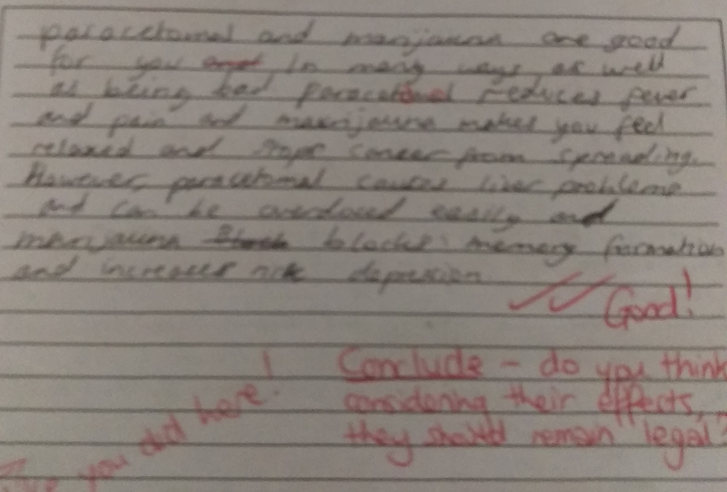 paracetamol and marijauna are good
for you and in many ways, as well
as being bad. paracetamol reduces fever
and pain and marijauna makes you feel
relaxed and stops cancer from spreading.
However, paracetamol causes liver problems
and can be overdosed easily and
marijauna blocks memory formation
and increases risk depression
Good!
Conclude - do you think
considering their effects,
they should remain legal?
you did here!